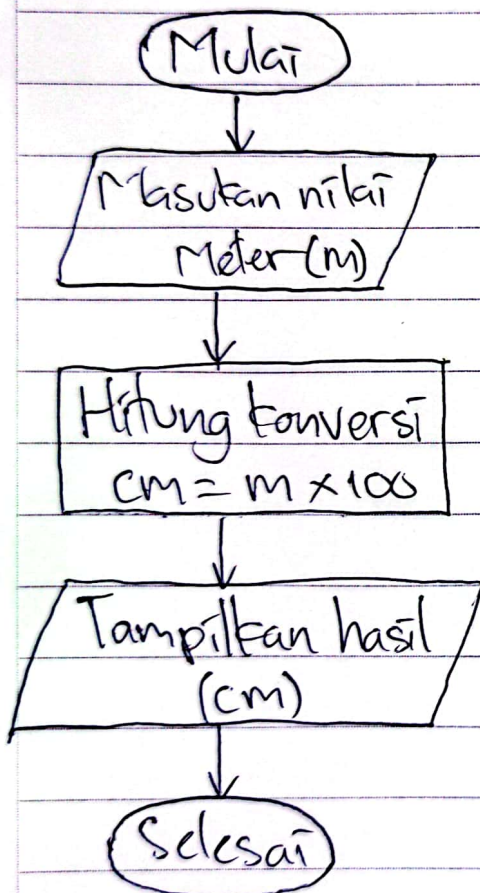 Mulai
Masukan nilai
Meter (m)
Hitung konversi
cm = m × 100
Tampilkan hasil
(cm)
Selesai